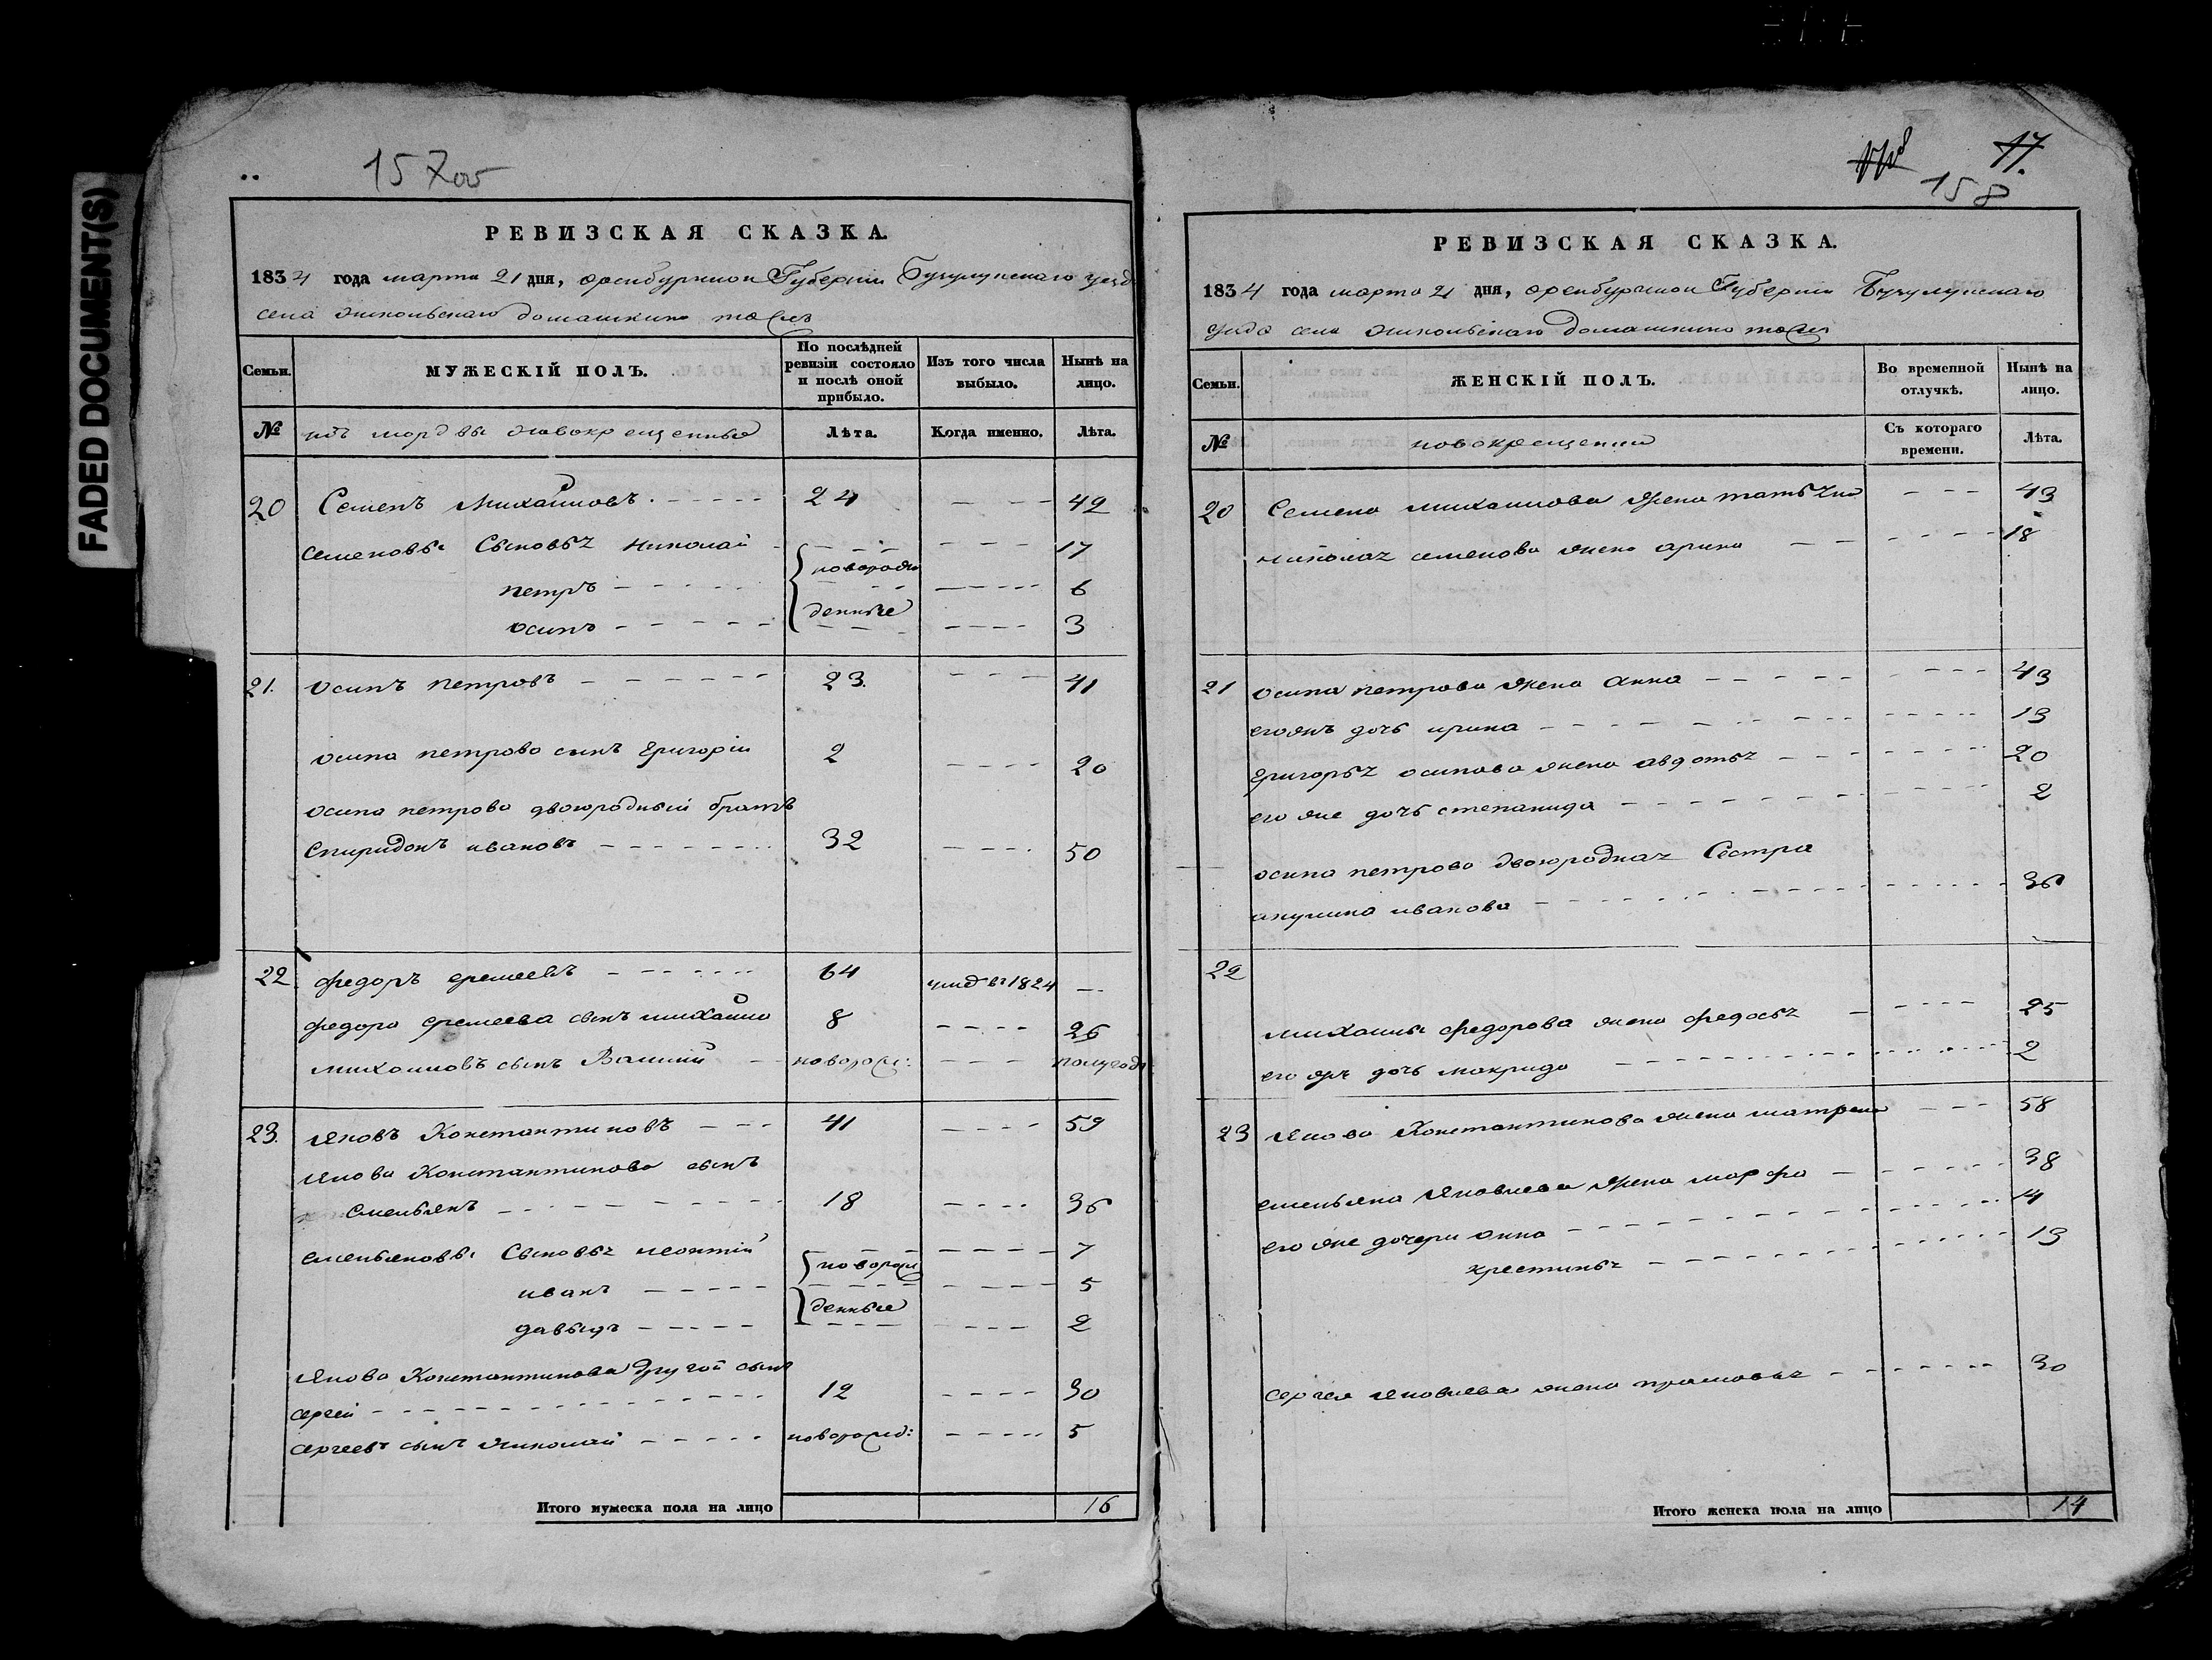 FADED DOCUMENT(S)
157об
РЕВИЗСКАЯ СКАЗКА.
1834 года марта 21 дня, оренбургской Губернии Бугулускаго уезд
села никольскаго домашкино тожъ
Семьи.
МУЖЕСКІЙ ПОЛЪ.
По послѣдней ревизіи состояло и послѣ оной прибыло.
Изъ того числа выбыло.
Нынѣ на лицо.
№
изъ мордвы новокрещенные
Лѣта.
Когда именно.
Лѣта.
20 Семенъ Михайловъ. 24 49
Семеновы Сыновья николай 17
новорож
петръ 6
денные
осипъ 3
21. осипъ петровъ 23. 41
осипа петрова сынъ григорій 2 20
осипа петрова двоюродный братъ
Спиридонъ ивановъ 32 50
22 федоръ еремеевъ 64 умер въ 1824
федора еремеева сынъ михайло 8 26
михайловъ сынъ Василий новорож: полугода
23. Яковъ Константиновъ 41 59
Якова Константинова сынъ
емельянъ 18 36
емельяновы Сыновья леонтій 7
новорож
иванъ 5
денные
давыдъ 2
Якова Константинова другой сынъ
сергей 12 30
сергеевъ сынъ николай новорожд: 5
Итого мужеска пола на лицо 16
17.
158
РЕВИЗСКАЯ СКАЗКА.
1834 года марта 21 дня, оренбургской Губернии Бугулускаго
уезда села никольскаго домашкино тожъ
Семьи.
ЖЕНСКІЙ ПОЛЪ.
Во временной отлучкѣ.
Нынѣ на лицо.
№
новокрещении
Съ котораго времени.
Лѣта.
20 Семена михаилова жена татьяна 43
николая семенова жена арина 18
21 осипа петрова жена Анна 43
его жъ дочь ирина 13
григорья осипова жена авдотья 20
его же дочь степанида 2
осипа петрова двоюродная Сестра
акулина иванова 36
22
михайлы федорова жена федосья 25
его жъ дочь макрида 2
23 Якова Константинова жена матрена 58
емельяна Яковлева жена марфа 38
его же дочери анна 4
крестинья 13
сергея яковлева жена прасковья 30
Итого женска пола на лицо 14